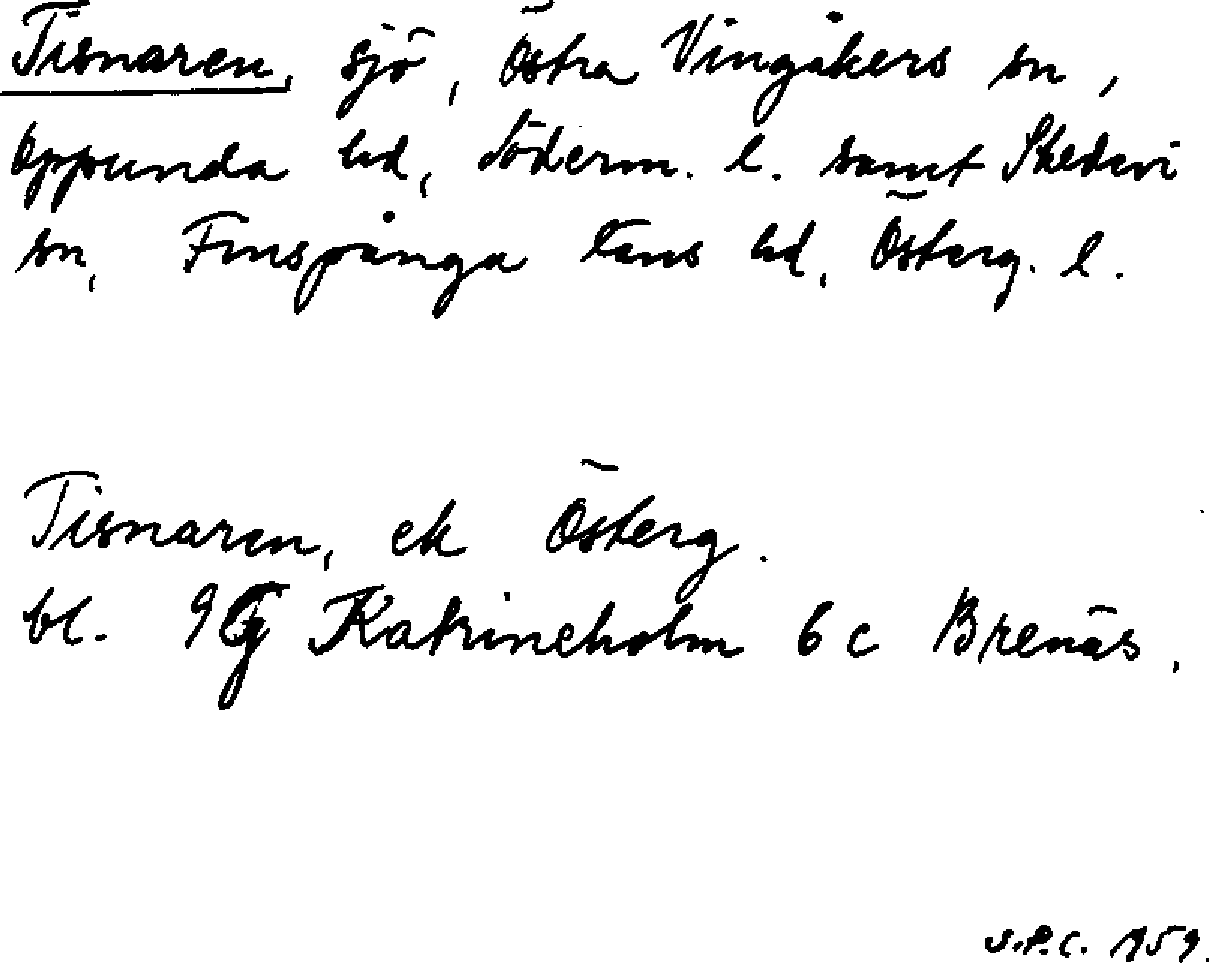 Tisnaren, sjö, Östra Vingåkers sn,
Oppunda hd, Söderm. l. samt Skedevi
sn, Finspånga läns hd, Österg. l.
Tisnaren, ek Österg.
bl. 9G Katrineholm 6c Brenäs.
1959.